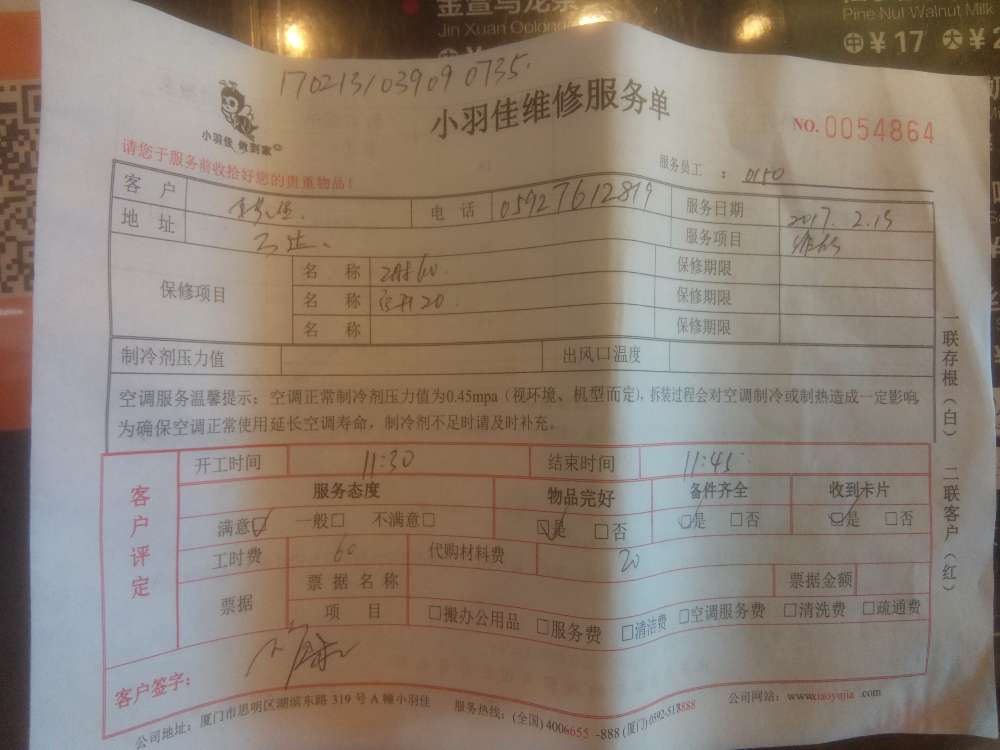 金萱乌龙茶
Jin Xuan Oolong
Pine Nut Walnut Milk
中 ¥ 17 大 ¥
170213103909 0735.
小羽佳 做到家
小羽佳维修服务单
NO. 0054864
请您于服务前收拾好您的贵重物品！
服务员工 ： 0150
客 户 电 话 05927612819 服务日期 2017. 2.15
地 址 服务项目 维修
保修项目 名 称 保修期限
名 称 保修期限
名 称 保修期限
制冷剂压力值 出风口温度
空调服务温馨提示：空调正常制冷剂压力值为0.45mpa（视环境、机型而定），拆装过程会对空调制冷或制热造成一定影响，
为确保空调正常使用延长空调寿命，制冷剂不足时请及时补充。
一联存根（白） 二联客户（红）
客户评定
开工时间 11:30 结束时间 11:45
服务态度 物品完好 备件齐全 收到卡片
满意☑ 一般□ 不满意□ ☑是 □否 ☑是 □否 ☑是 □否
工时费 60 代购材料费 20
票据 票 据 名 称 票据金额
项 目 □搬办公用品 □服务费 □清洁费 □空调服务费 □清洗费 □疏通费
客户签字：
公司地址：厦门市思明区湖滨东路 319 号 A 幢小羽佳 服务热线：(全国) 4006655 -888 (厦门) 0592-518888 公司网站：www.xiaoyujia .com